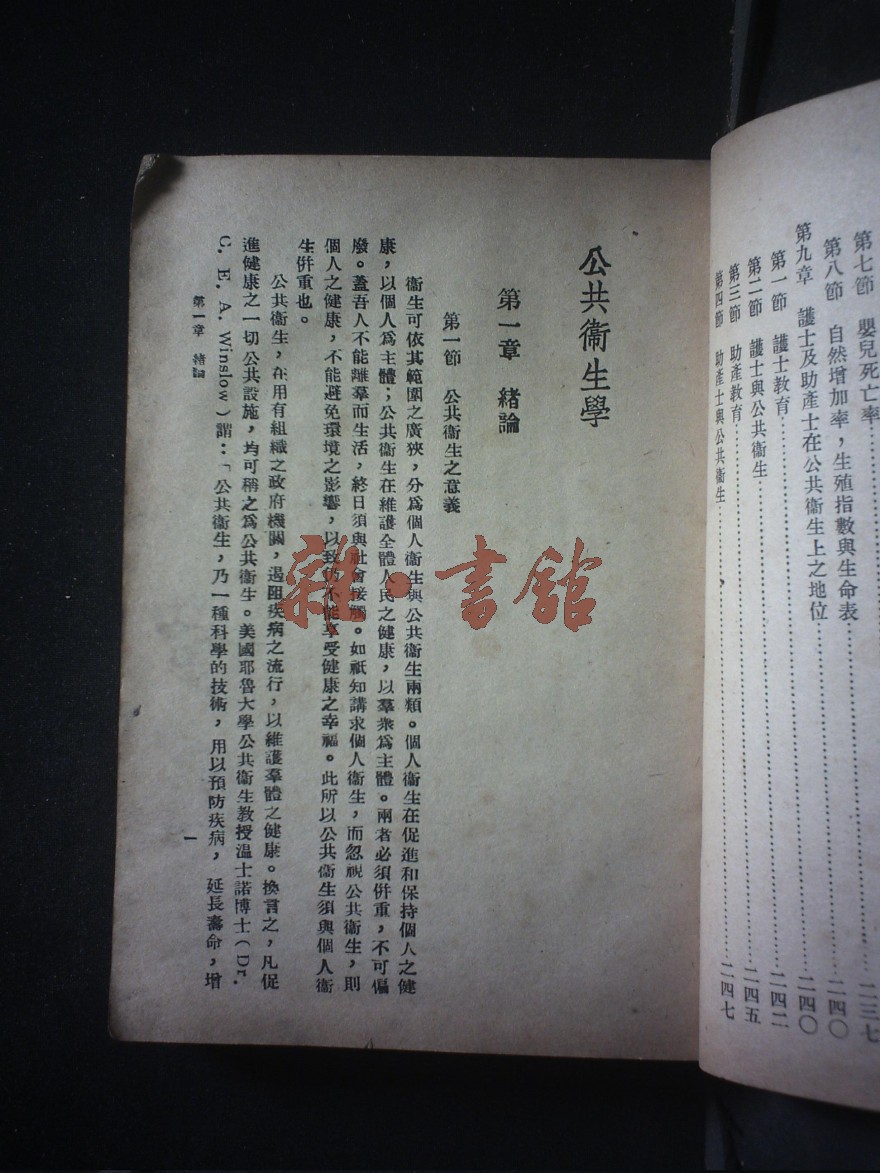 第七節　嬰兒死亡率……二三七
第八節　自然增加率，生殖指數與生命表……二四〇
第九章　護士及助產士在公共衞生上之地位……二四〇
第一節　護士教育……二四二
第二節　護士與公共衞生……二四五
第三節　助產教育……
第四節　助產士與公共衞生……二四七
公共衞生學
第一章　緒論
第一節　公共衞生之意義
衞生可依其範圍之廣狹，分爲個人衞生與公共衞生兩類。個人衞生在促進和保持個人之健
康，以個人爲主體；公共衞生在維護全體人民之健康，以羣衆爲主體。兩者必須併重，不可偏
廢。蓋吾人不能離羣而生活，終日須與社會接觸。如祇知講求個人衞生，而忽視公共衞生，則
個人之健康，不能避免環境之影響，以致仍不能享受健康之幸福。此所以公共衞生須與個人衞
生併重也。
公共衞生，在用有組織之政府機關，遏阻疾病之流行，以維護羣體之健康。換言之，凡促
進健康之一切公共設施，均可稱之爲公共衞生。美國耶魯大學公共衞生教授溫士諾博士（Dr.
C. E. A. Winslow）謂：「公共衞生，乃一種科學的技術，用以預防疾病，延長壽命，增
第一章　緒論
一
雜·書館